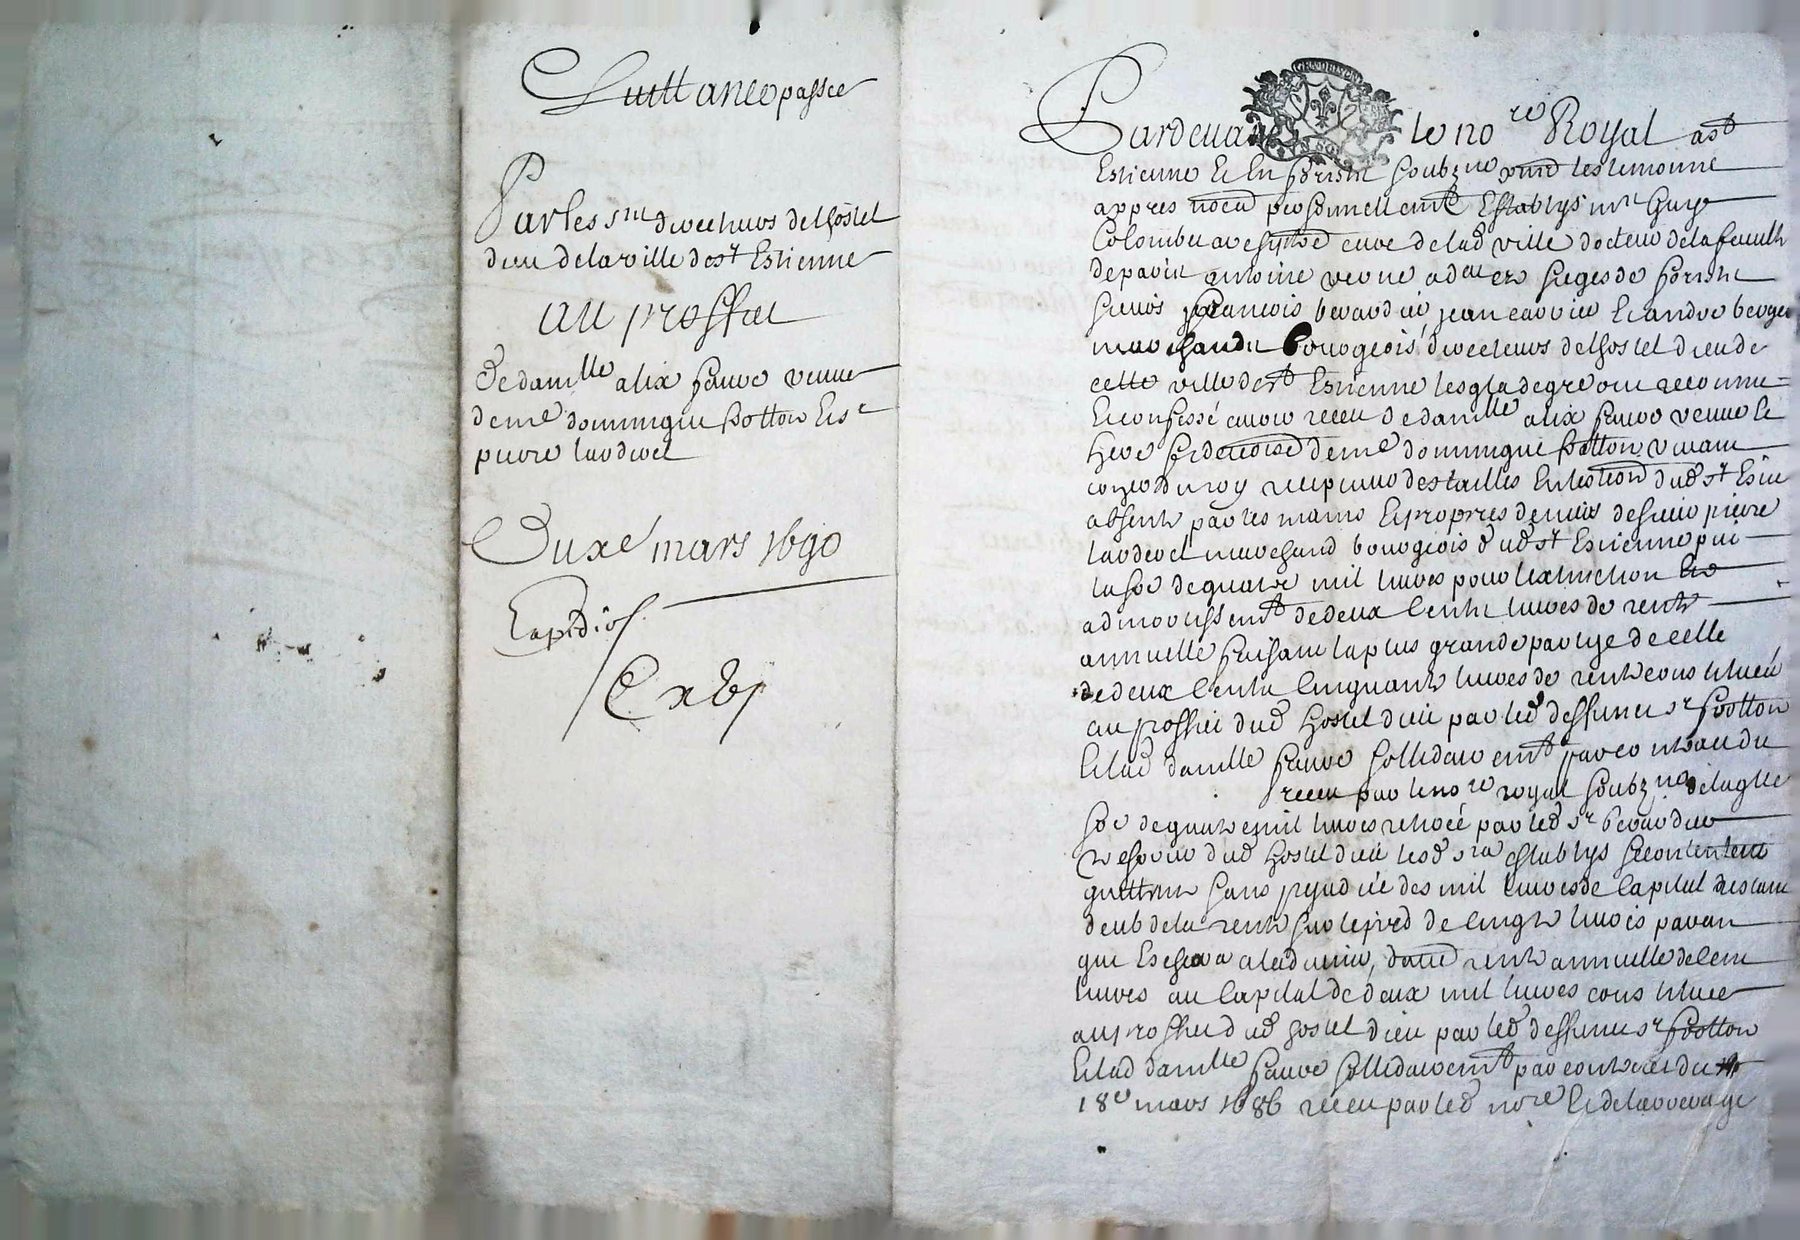 Quittance passee
Par les srs directeurs de l'hostel
dieu de la ville de st Estienne
au proffict
De damlle alix faure veuve
de me dominique frotton Et sr
pierre lardiere
Du xe mars 1690
Expedié
Par devant le nore Royal a st
Estienne Et En forests soubzne les temoins
appres nommés personnellemt Establys mre Guy
Colombet curé de lad ville docteur de la faculté
de paris antoine adat ez sieges de forests
sieurs francois berardier jean carrier Et andre beroyer
marchands bourgeois directeurs de l'hostel dieu de
cette ville de st Estienne lesqls de gre ont reconnu
Et confessé avoir receu de damlle alix faure veuve Et
de me dominique frotton vivant
coner du roy receveur des tailles En lection dud st Esne
absente par les mains Et propres deniers de sieur pierre
lardiere marchand bourgeois dud st Estienne
la soe de quatre mil livres pour l'extinction Et
admortissemt de deux Cents livres de rente
annuelle faisant la plus grande partye de celle
de deux Cents Cinquante livres de rente constituée
au proffict dud hostel dieu par led deffunct sr frotton
Et lad damlle faure sollidairemt par contract du
receu par le nore royal soubzne de laqlle
soe de quatre mil livres retirée par led sr berardier
tresorier dud hostel dieu lesd srs establys se contentent
quittent sans prejudice des mil livres de Capital restant
deub de la rente sur le pied de Cinqte livres par an
que Escherra a l'advenir, rente annuelle de Cent
livres au Capital de deux mil livres constituée
au proffict dud hostel dieu par led deffunct sr frotton
Et lad damlle faure sollidairemt par contract du
18e mars 1686 receu par led nore Et de l'arrerage